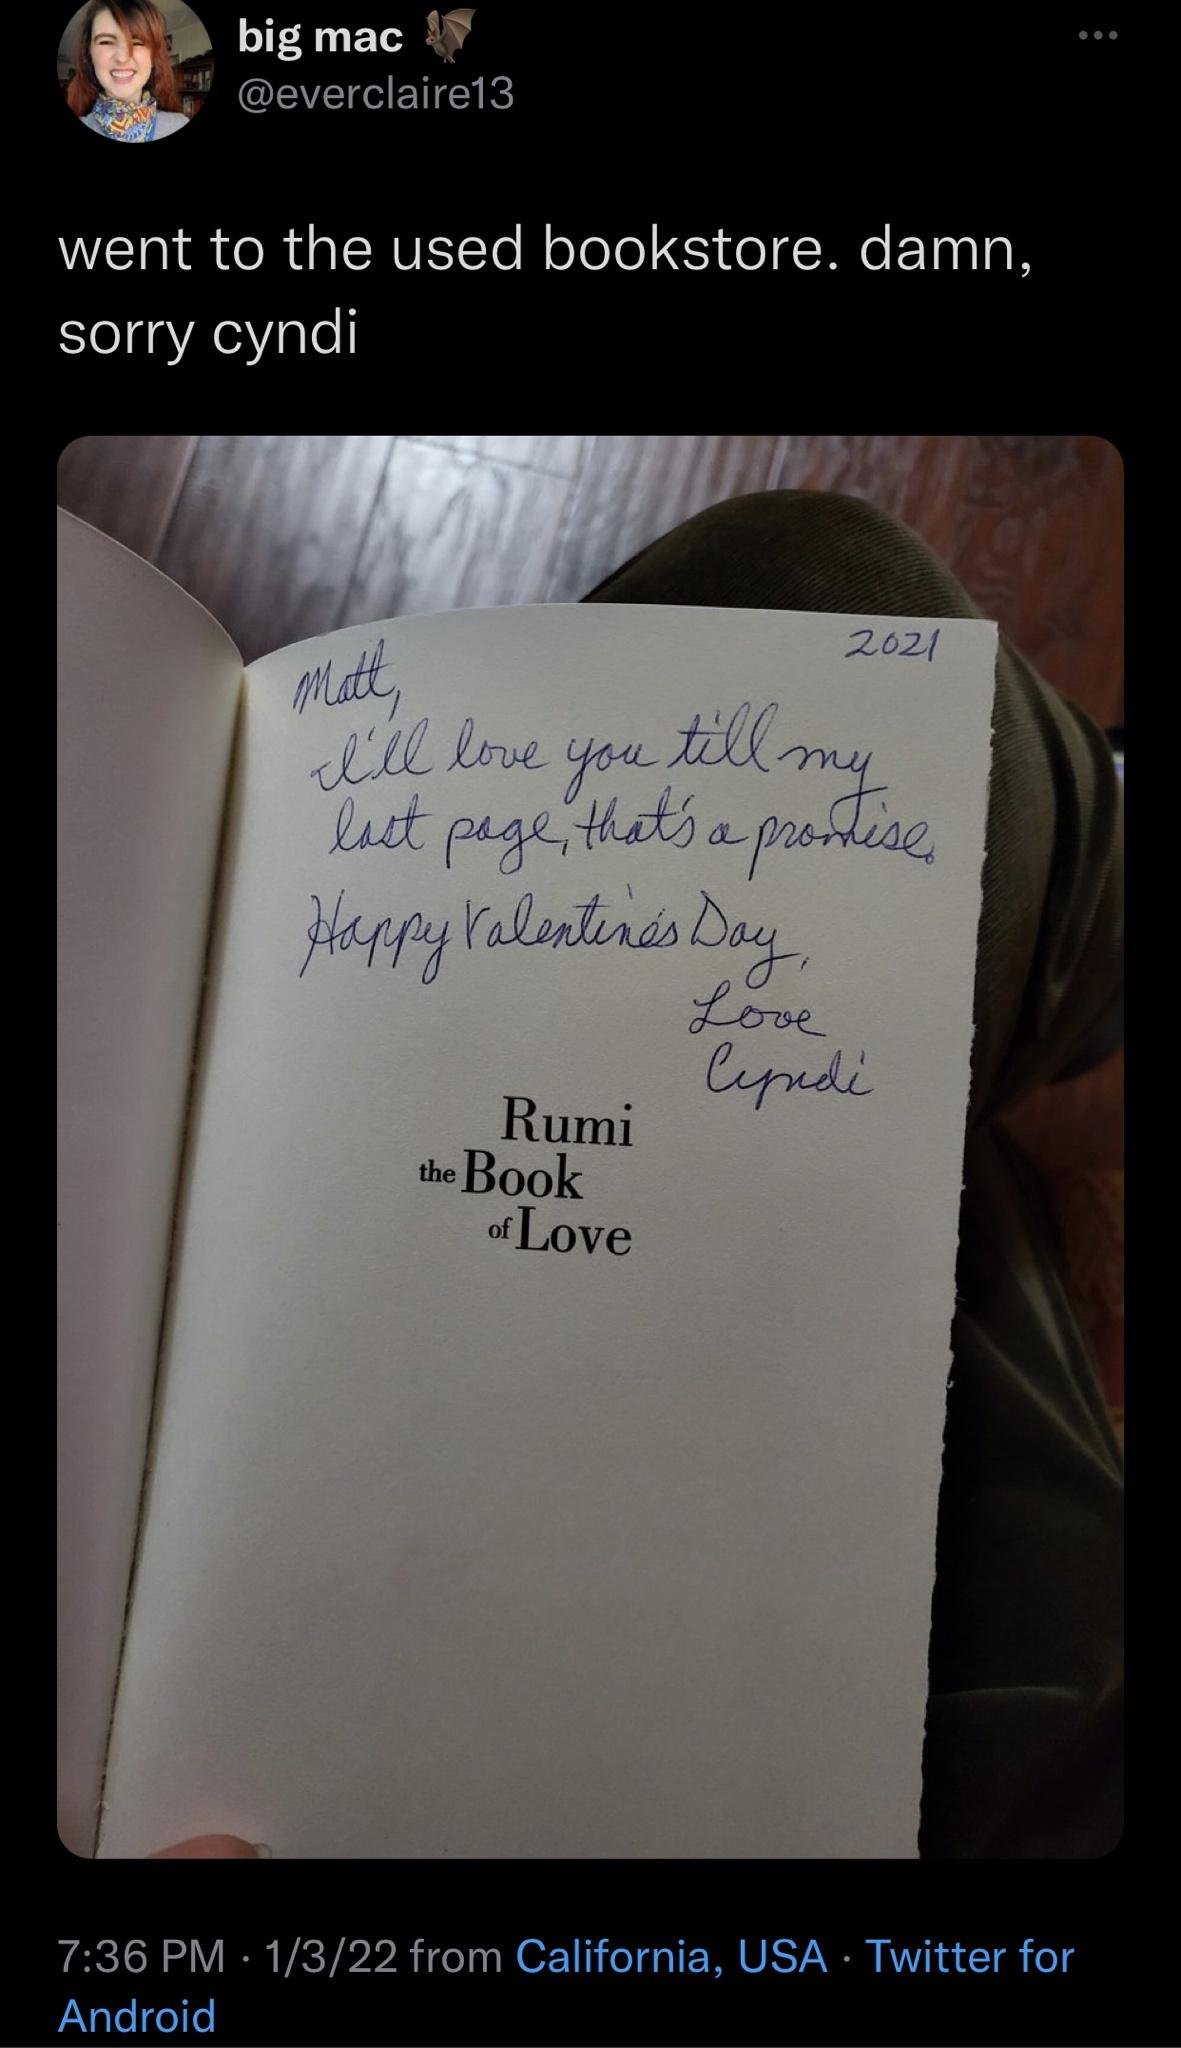 big mac 🦇
@everclaire13
went to the used bookstore. damn,
sorry cyndi
2021
Matt,
I'll love you till my
last page, that's a promise.
Happy Valentine's Day,
Love
Cyndi
Rumi
the Book
of Love
7:36 PM · 1/3/22 from California, USA · Twitter for
Android